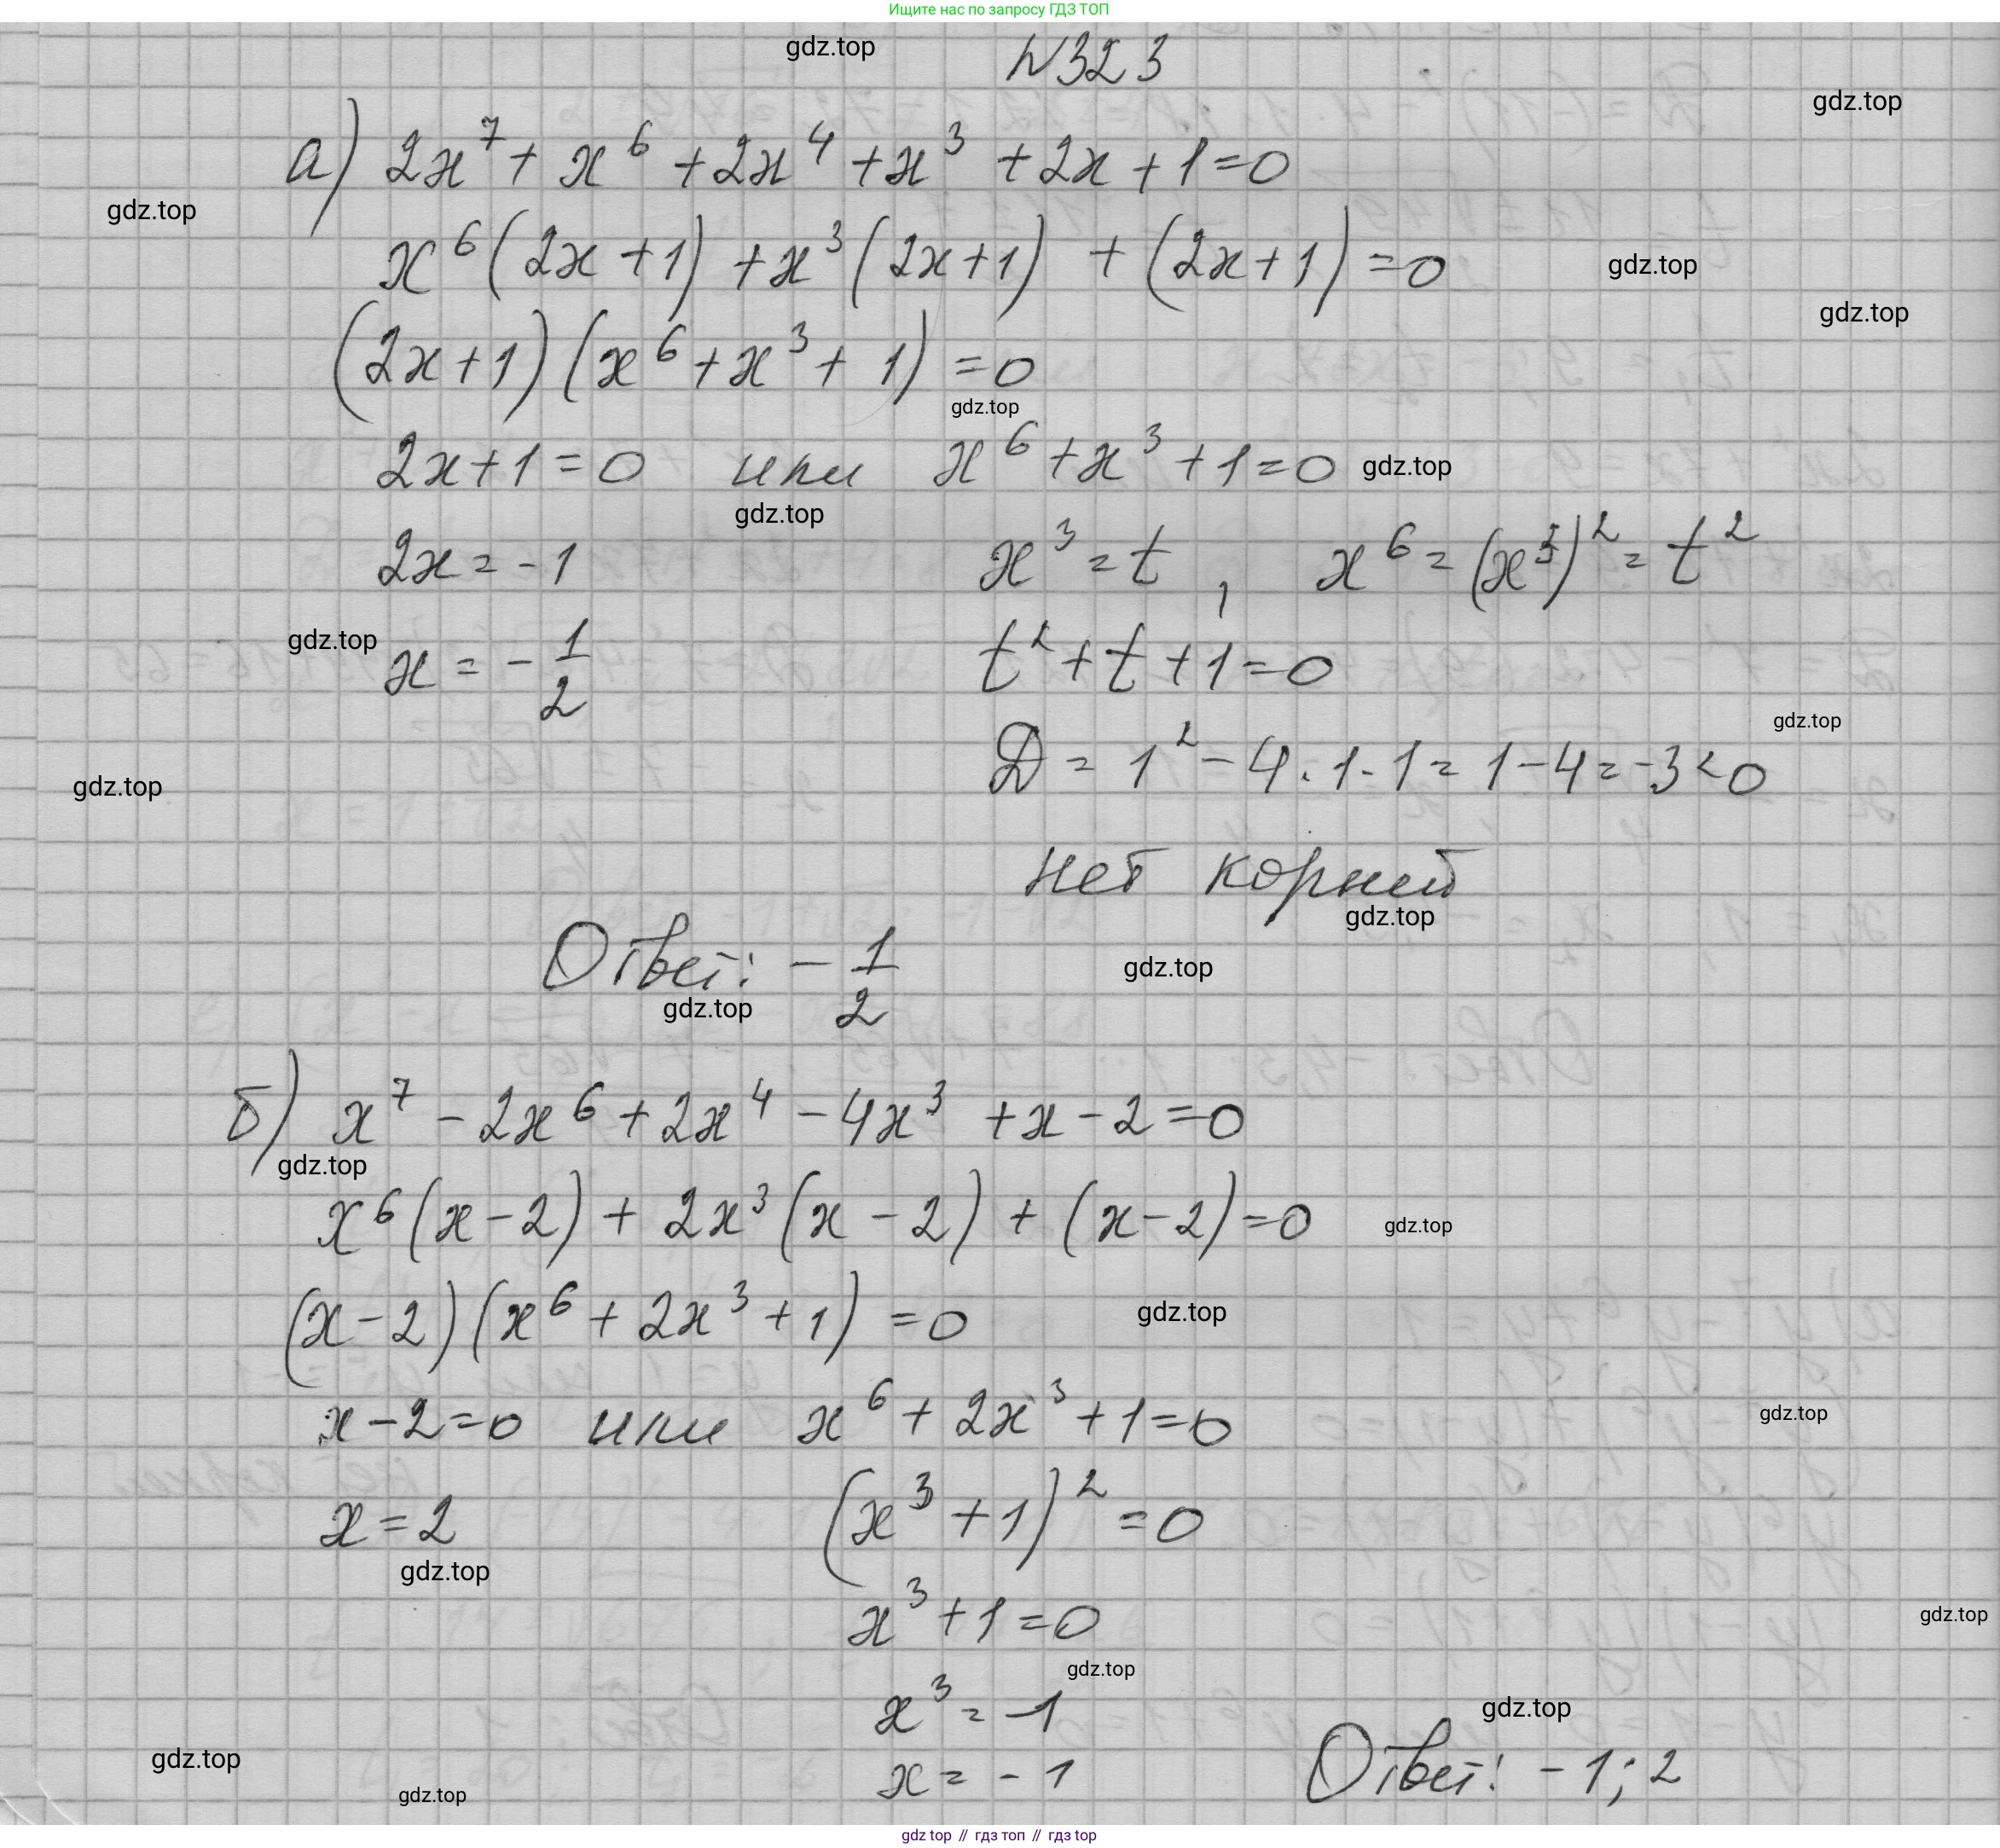 Ищите нас по запросу ГДЗ ТОП
gdz.top
N323
gdz.top
а) 2x⁷ + x⁶ + 2x⁴ + x³ + 2x + 1 = 0
gdz.top
x⁶(2x + 1) + x³(2x + 1) + (2x + 1) = 0
gdz.top
gdz.top
(2x + 1)(x⁶ + x³ + 1) = 0
gdz.top
2x + 1 = 0 или x⁶ + x³ + 1 = 0
gdz.top
gdz.top
2x = -1 x³ = t , x⁶ = (x³)² = t²
gdz.top
x = - 1/2 t² + t + 1 = 0
gdz.top
D = 1² - 4 · 1 · 1 = 1 - 4 = -3 < 0
gdz.top
нет корней
gdz.top
Ответ: - 1/2
gdz.top
gdz.top
б) x⁷ - 2x⁶ + 2x⁴ - 4x³ + x - 2 = 0
gdz.top
x⁶(x - 2) + 2x³(x - 2) + (x - 2) = 0
gdz.top
(x - 2)(x⁶ + 2x³ + 1) = 0
gdz.top
x - 2 = 0 или x⁶ + 2x³ + 1 = 0
gdz.top
x = 2 (x³ + 1)² = 0
gdz.top
x³ + 1 = 0
gdz.top
gdz.top
x³ = -1
gdz.top
gdz.top
x = -1 Ответ: -1; 2
gdz.top
gdz top // гдз топ // гдз top